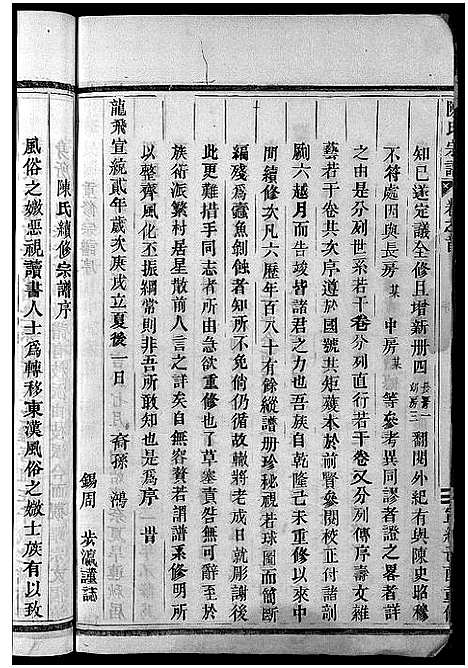 陳氏宗譜 卷之首
宣統庚戌重修
知己遂定議全修且增新册四長房一幼房三翻閱外紀有與陳史昭穆
不符處因與長房某中房某等參考異同謬者證之畧者詳
之由是分列世系若干卷分列直行若干卷又分列傳序壽文雜
藝若干卷其次序遵以國號其矩矱本於前賢參閱校正付剞
劂六越月而告竣皆諸君之力也吾族自乾隆己未以來中
間續修次凡六歷年百八十有餘縱譜册珍秘視若球圖而簡斷
編殘爲蠹魚剝蝕者知所不免倘仍循故轍將老成日就彫謝後
此更難措手同志者所由急欲重修也了草塞責無可辭至於
族術派繁村居星散前人言之詳矣自無容贅若謂譜系修明所
以整齊風化丕振綱常則非吾所敢知也是爲序 旹
龍飛宣統貳年歲次庚戌立夏後一日 裔孫 鴻
錫周 步瀛謹誌
陳氏續修宗譜序
風俗之媺惡視讀書人士爲轉移東漢風俗之媺士族有以致